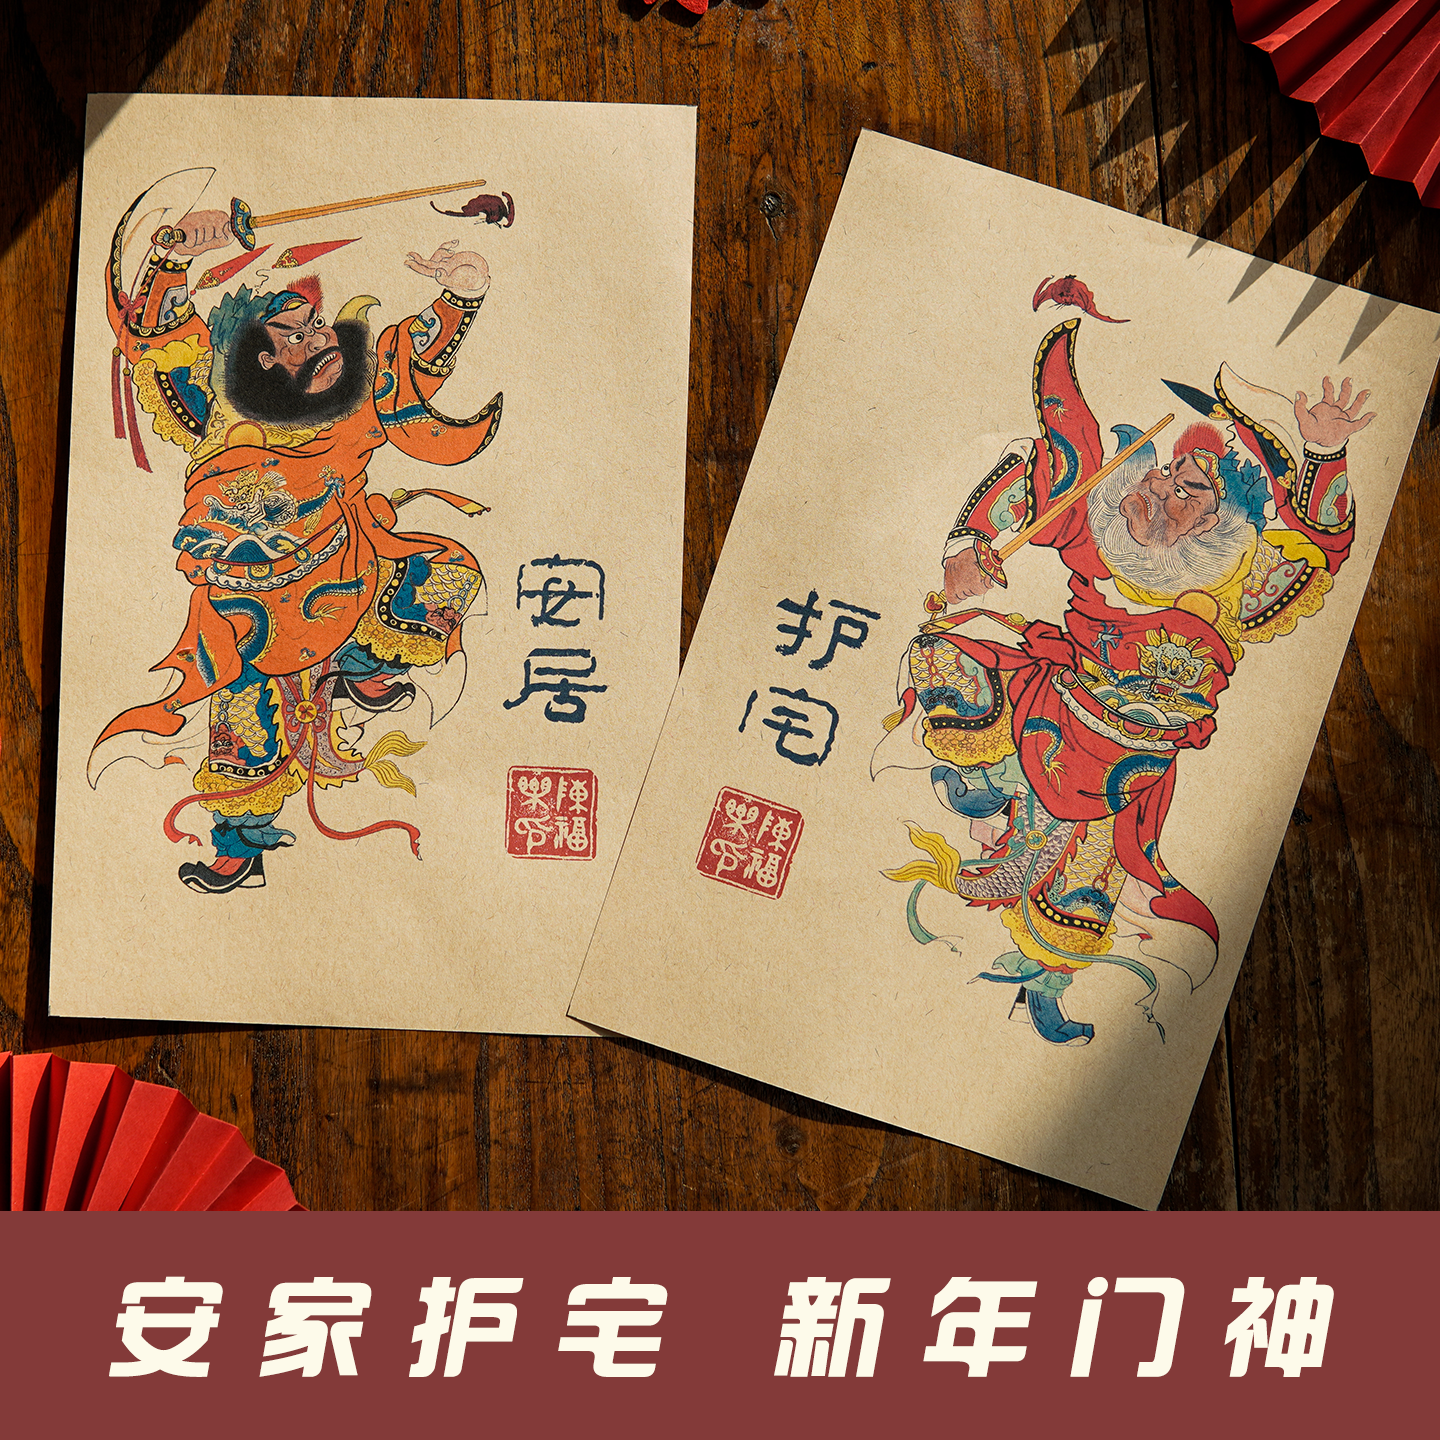 安居
陳福樂印
护宅
陳福樂印
安家护宅 新年门神